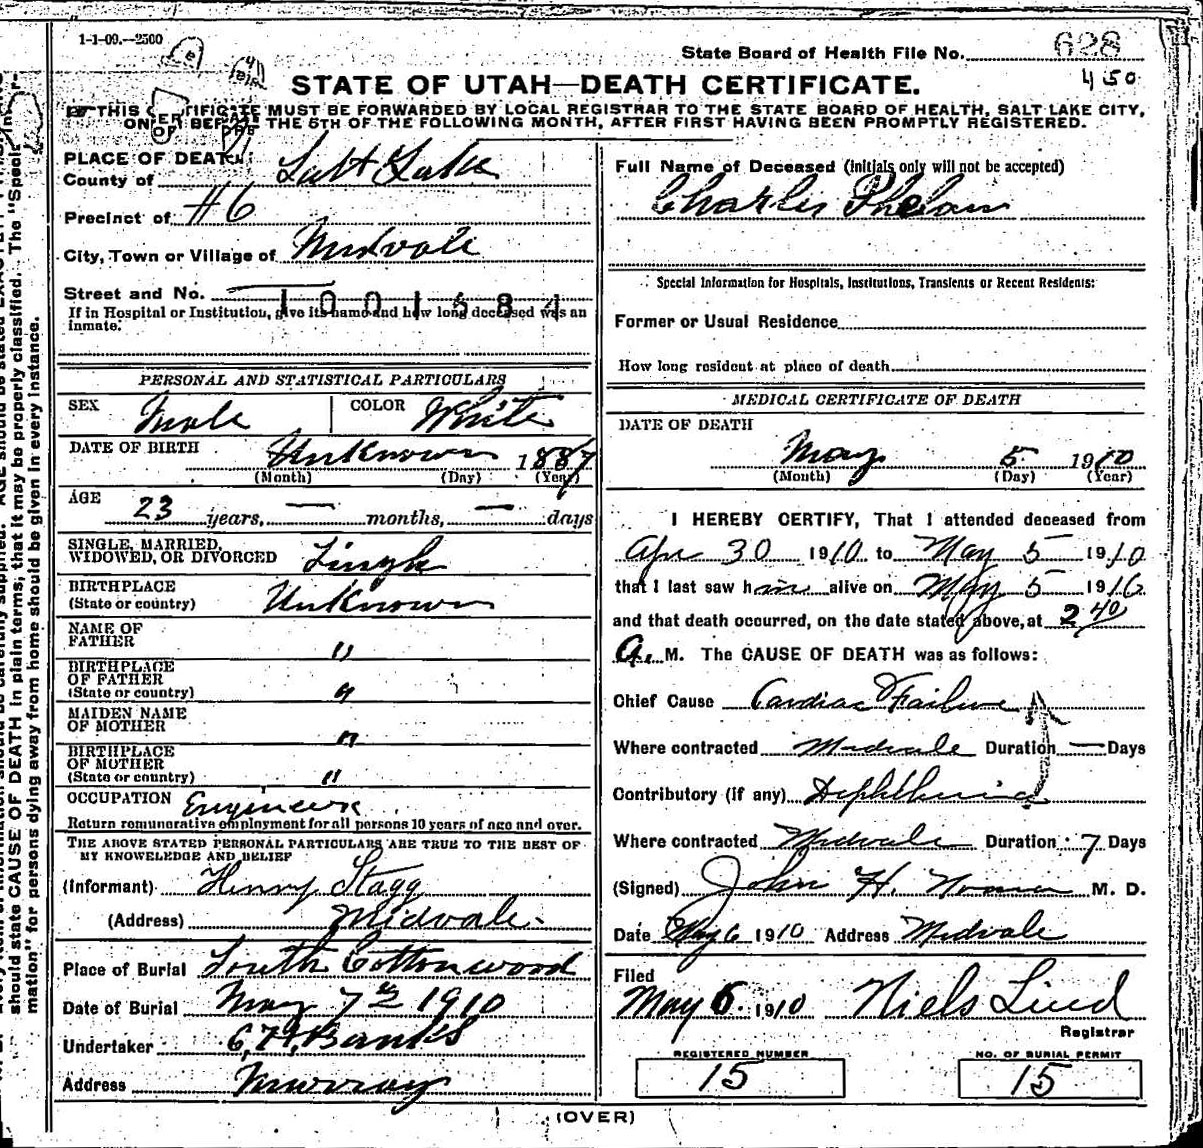 1-1-09.--2500
State Board of Health File No. 628
450
STATE OF UTAH—DEATH CERTIFICATE.
THIS CERTIFICATE MUST BE FORWARDED BY LOCAL REGISTRAR TO THE STATE BOARD OF HEALTH, SALT LAKE CITY,
ON OR BEFORE THE 5TH OF THE FOLLOWING MONTH, AFTER FIRST HAVING BEEN PROMPTLY REGISTERED.
PLACE OF DEATH
County of Salt Lake
Precinct of #6
City, Town or Village of Midvale
Street and No.
1001584
If in Hospital or Institution, give its name and how long deceased was an
inmate.
PERSONAL AND STATISTICAL PARTICULARS
SEX Male COLOR White
DATE OF BIRTH Unknown 1887
(Month) (Day) (Year)
AGE
23 years, — months, — days
SINGLE, MARRIED,
WIDOWED, OR DIVORCED Single
BIRTHPLACE
(State or country) Unknown
NAME OF
FATHER "
BIRTHPLACE
OF FATHER
(State or country) "
MAIDEN NAME
OF MOTHER "
BIRTHPLACE
OF MOTHER
(State or country) "
OCCUPATION Engineer
Return remunerative employment for all persons 10 years of age and over.
THE ABOVE STATED PERSONAL PARTICULARS ARE TRUE TO THE BEST OF
MY KNOWELEDGE AND BELIEF
(Informant) Henry Stagg
(Address) Midvale.
Place of Burial South Cottonwood
Date of Burial May 7th 1910
Undertaker Banks
Address Murray
Full Name of Deceased (initials only will not be accepted)
Charles Phelan
Special Information for Hospitals, Institutions, Transients or Recent Residents:
Former or Usual Residence
How long resident at place of death
MEDICAL CERTIFICATE OF DEATH
DATE OF DEATH
May 5 1910
(Month) (Day) (Year)
I HEREBY CERTIFY, That I attended deceased from
Apr 30 1910 to May 5 1910
that I last saw him alive on May 5 1910
and that death occurred, on the date stated above, at 2 40
A. M. The CAUSE OF DEATH was as follows:
Chief Cause Cardiac Failure
Where contracted Midvale Duration — Days
Contributory (if any) Diphtheria
Where contracted Midvale Duration 7 Days
(Signed) John H. M. D.
Date May 6 1910 Address Midvale
Filed
May 6. 1910 Niels Lind
Registrar
REGISTERED NUMBER
15
NO. OF BURIAL PERMIT
15
(OVER)
should state CAUSE OF DEATH in plain terms, that it may be properly classified. The "Special Infor-
mation" for persons dying away from home should be given in every instance.